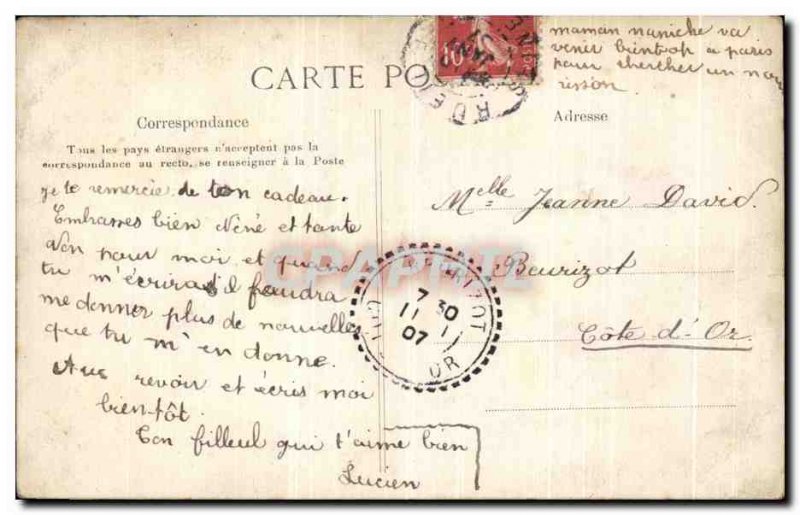 maman naniche va
venir bientot a paris
pour chercher un nou
risson.
CARTE PO
Correspondance
Adresse
Tous les pays étrangers n'acceptent pas la
correspondance au recto, se renseigner à la Poste
je te remercie de ton cadeau.
Embrasses bien Néné et tante
pour moi et quand
tu m'écriras il faudra
me donner plus de nouvelles
que tu m'en donne.
Aue revoir et écris moi
bientôt.
Ton filleul qui t'aime bien
Lucien
Melle Jeanne David
Beurizot
Côte d'Or
7 30
11 1
07
OR
10
CPAPHIL